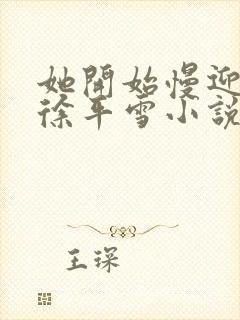 她開始慢迎
徐平雪小說
王琛